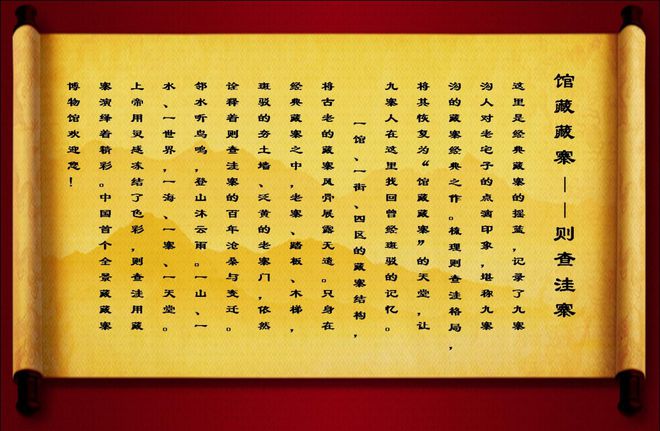 馆藏藏寨——则查洼寨
这里是经典藏寨的摇蓝,记录了九寨
沟人对老宅子的点滴印象,堪称九寨
沟的藏寨经典之作。梳理则查洼格局,
将其恢复为“馆藏藏寨”的天堂,让
九寨人在这里找回曾经斑驳的记忆。
一馆、一街、四区的藏寨结构,
将古老的藏寨风骨展露无遗。只身在
经典藏寨之中,老寨、踏板、木梯,
斑驳的夯土墙、泛黄的老寨门,依然
诠释着则查洼寨的百年沧桑与变迁。
邻水听鸟鸣,登山沐云雨。一山、一
水、一世界,一海、一寨、一天堂。
上帝用灵迹冻结了色彩,则查洼用藏
寨演绎着精彩。中国首个全景藏藏寨
博物馆欢迎您!